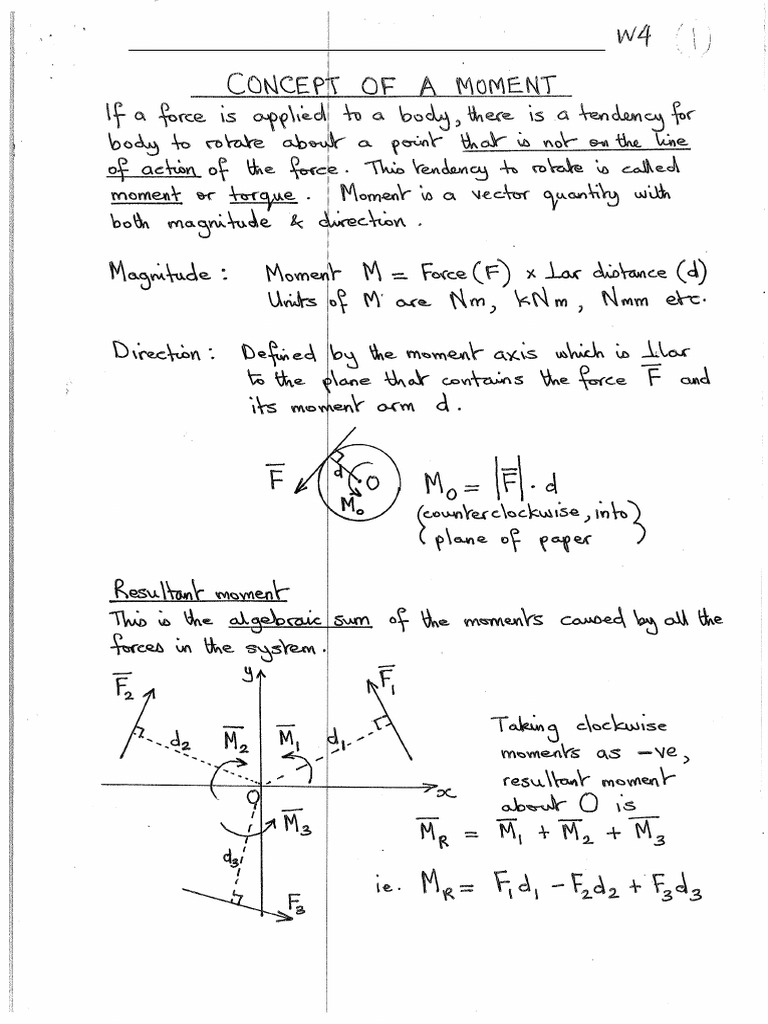 W4 (1)
CONCEPT OF A MOMENT
If a force is applied to a body, there is a tendency for
body to rotate about a point that is not on the line
of action of the force. This tendency to rotate is called
moment or torque. Moment is a vector quantity with
both magnitude & direction.
Magnitude: Moment M = Force (F) × ⊥lar distance (d)
Units of M are Nm, kNm, Nmm etc.
Direction: Defined by the moment axis which is ⊥lar
to the plane that contains the force F̅ and
its moment arm d.
F̅ d O M₀
M₀ = |F̅| · d
(counterclockwise, into)
(plane of paper)
Resultant moment
This is the algebraic sum of the moments caused by all the
forces in the system.
F̅₂ y F̅₁
d₂ M̅₂ M̅₁ d₁
O x
M̅₃
d₃
F₃
Taking clockwise
moments as -ve,
resultant moment
about O is
M̅R = M̅₁ + M̅₂ + M̅₃
ie. MR = F₁d₁ - F₂d₂ + F₃d₃